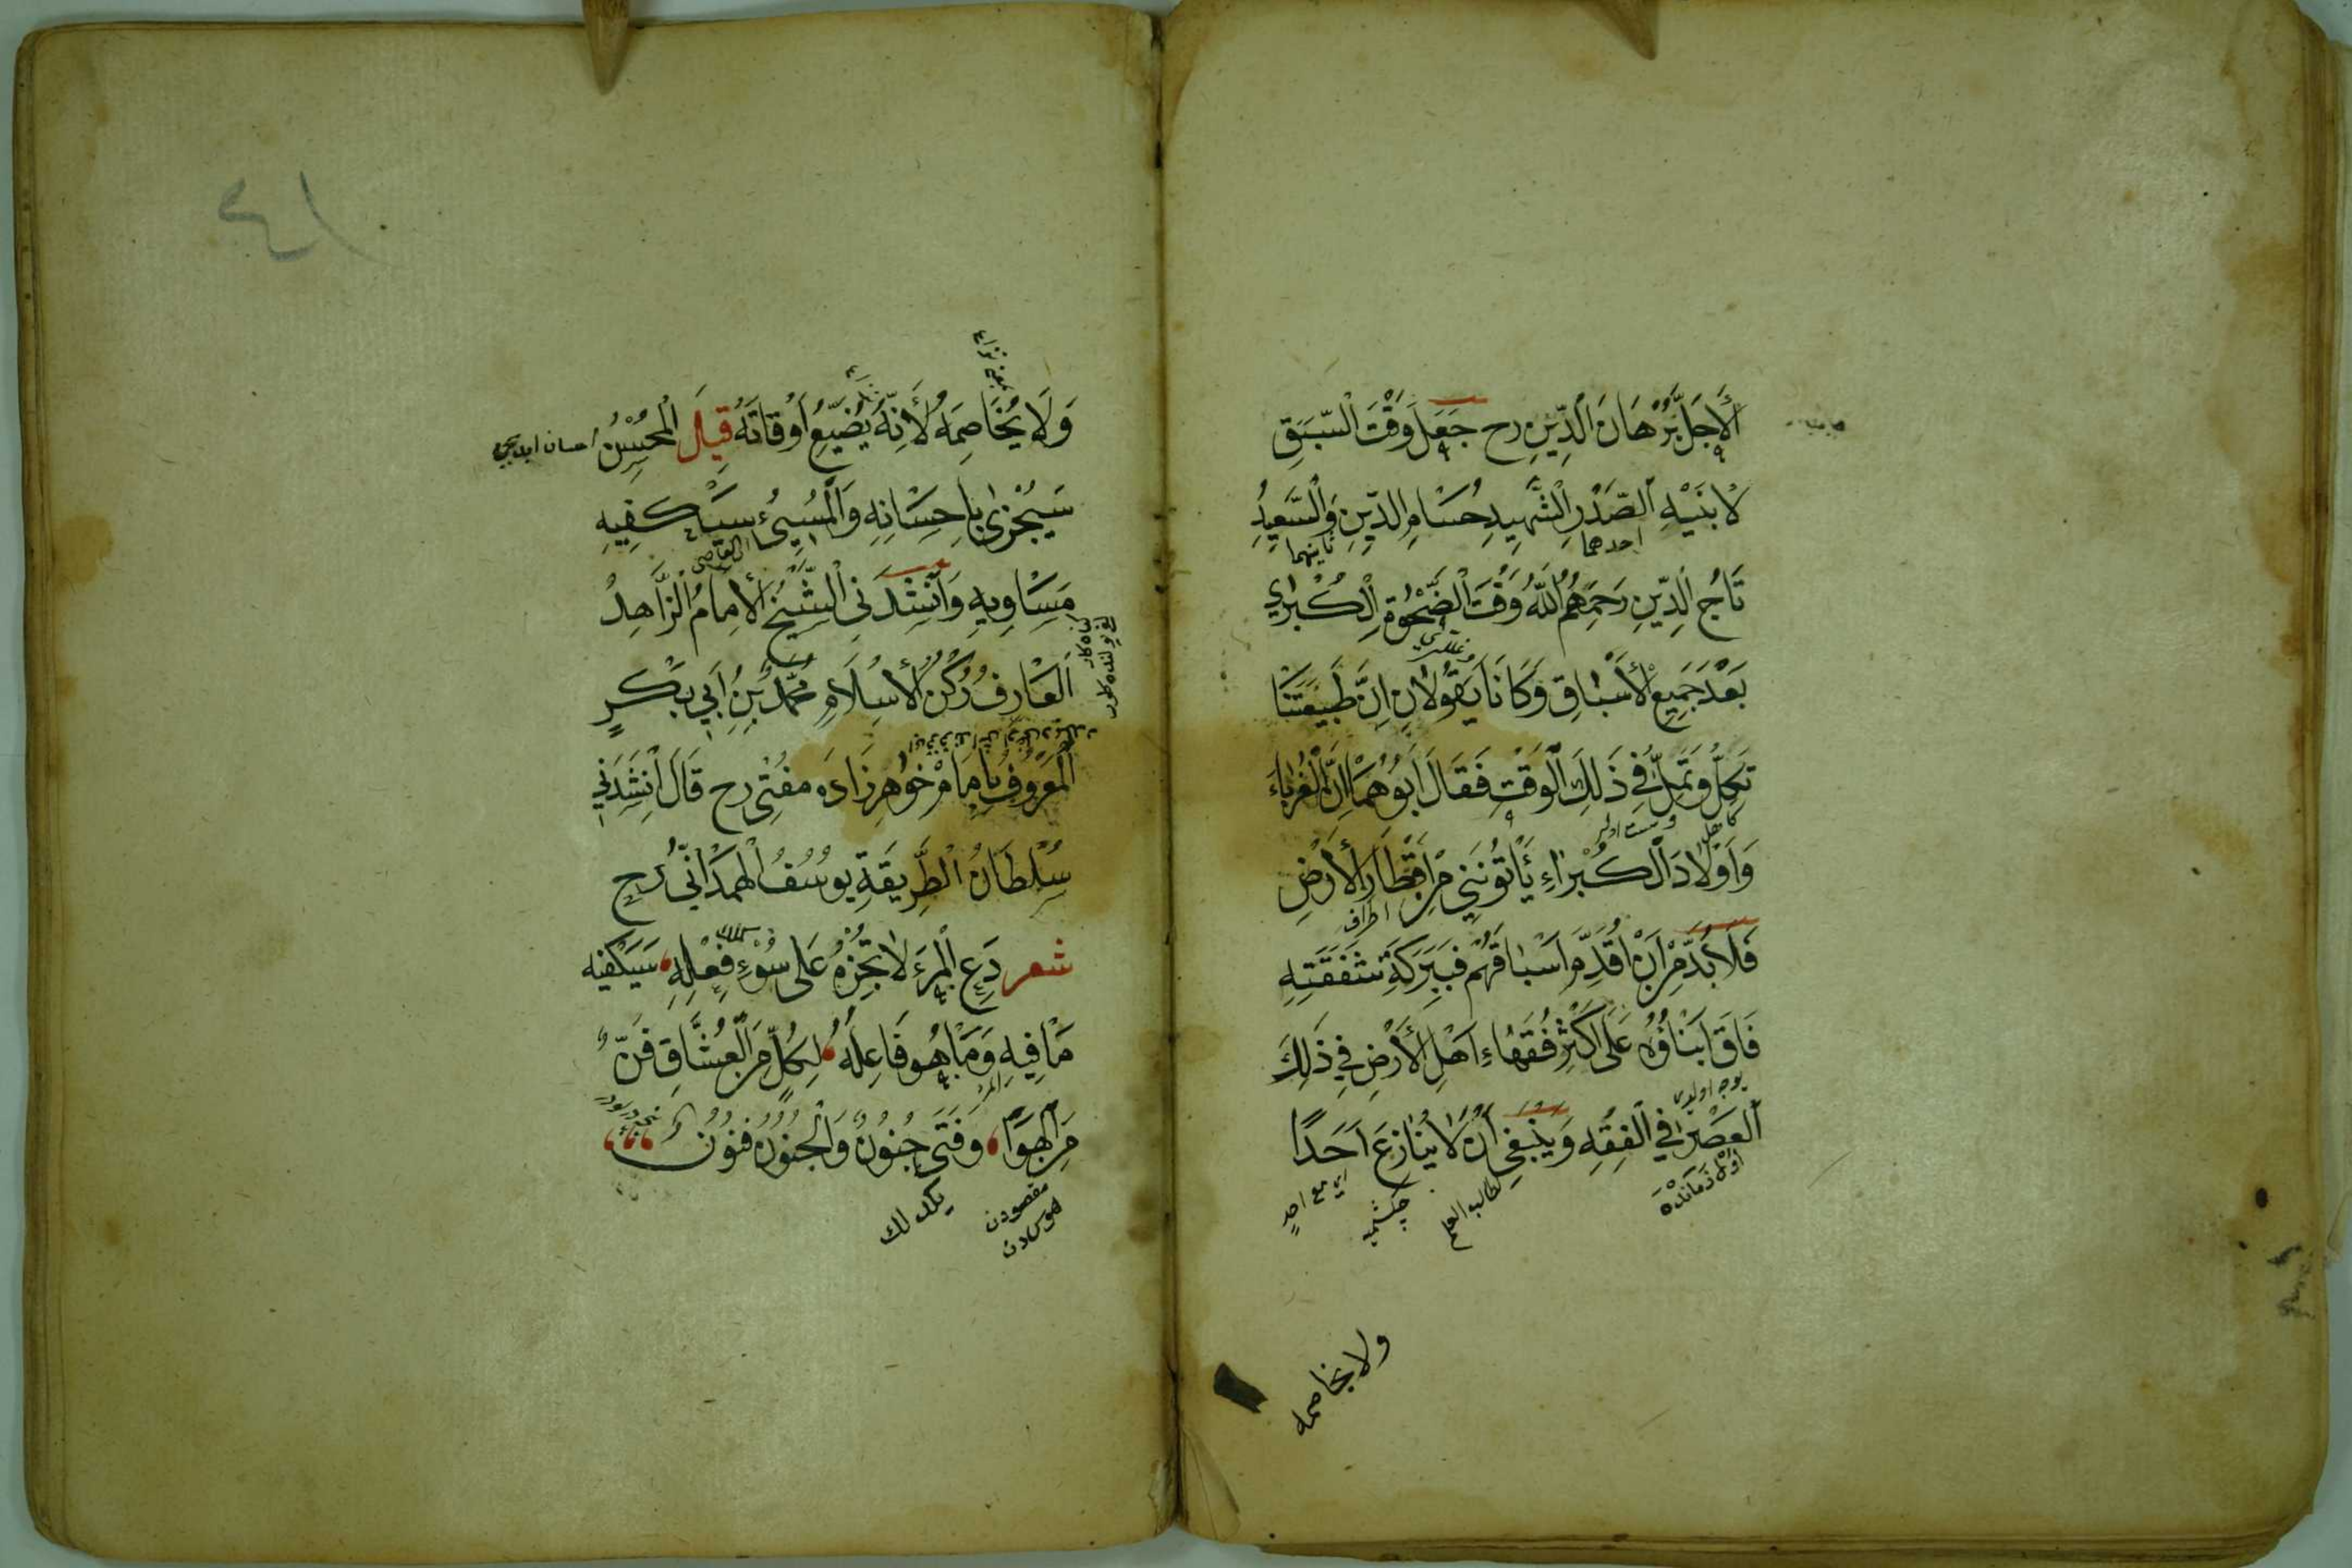 الْأَجَلَّ بُرْهَانَ الدِّينِ رح جَعَلَ وَقْتَ السَّبَقِ
لِابْنَيْهِ الصَّدْرِ الشَّهِيدِ حُسَامِ الدِّينِ وَالسَّعِيدِ
احدهما ثانيهما
تَاجِ الدِّينِ رَحِمَهُمُ اللّٰهُ وَقْتَ الضَّحْوَةِ الْكُبْرٰى
بَعْدَ جَمِيعِ الْأَسْبَاقِ وَكَانَا يَقُولَانِ اِنَّ طَبِيعَتَنَا
تَكِلُّ وَتَمِلُّ فِي ذَلِكَ الْوَقْتِ فَقَالَ اَبُوهُمَا اِنَّ الْغُرَبَاءَ
وَاَوْلَادَ الْكُبَرَاءِ يَأْتُونَنِي مِنْ اَقْطَارِ الْأَرْضِ
اطراف
فَلَا بُدَّ مِنْ اَنْ اُقَدِّمَ اَسْبَاقَهُمْ فَبِبَرَكَةِ شَفَقَتِهِ
فَاقَ اَبْنَاؤُهُ عَلَى اَكْثَرِ فُقَهَاءِ اَهْلِ الْأَرْضِ فِي ذَلِكَ
الْعَصْرِ فِي الْفِقْهِ وَيَنْبَغِي اَنْ لَا يُنَازِعَ اَحَدًا
اول زمانده
طالب العلم
اي مع احد
ولا يخاصمه
٤١
وَلَا يُخَاصِمَهُ لِأَنَّهُ يُضَيِّعُ اَوْقَاتَهُ قِيلَ الْمُحْسِنُ
سَيُجْزَى بِاِحْسَانِهِ وَالْمُسِيءُ سَيَكْفِيهِ
مَسَاوِيهِ وَاَنْشَدَنِي الشَّيْخُ الْأِمَامُ الزَّاهِدُ
الْعَارِفُ رُكْنُ الْأِسْلَامِ مُحَمَّدُ بْنُ اَبِي بَكْرٍ
الْمَعْرُوفُ بِاِمَامْ خُوٰاهِرْزَادَه مفْتِي رح قَالَ اَنْشَدَنِي
سُلْطَانُ الطَّرِيقَةِ يُوسُفُ الْهَمْدَانِيُّ رح
شعر دَعِ الْمَرْءَ لَا تَجْزِهُ عَلَى سُوْءِ فِعْلِهِ سَيَكْفِيهِ
مَا فِيهِ وَمَا هُوَ فَاعِلُهُ لِكُلٍّ مِنَ الْعُشَّاقِ فَنٌّ
المرء
مِنَ الْهَوَا وَفَتَى جُنُونٌ وَالْجُنُونُ فُنُونٌ
مقصودن
هوسدن